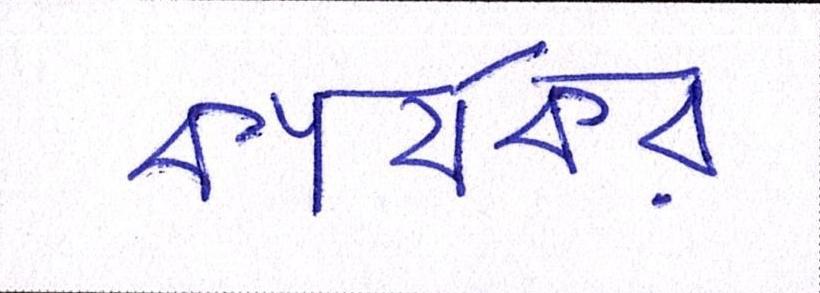 কার্যকর